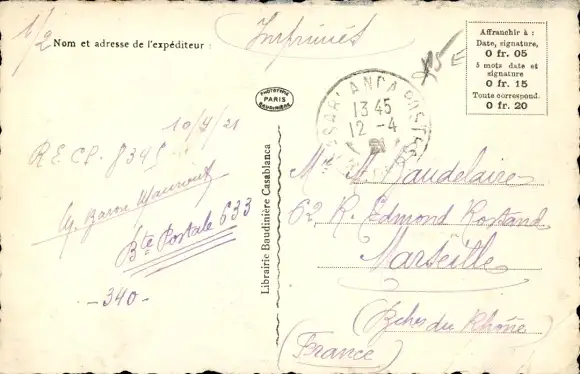 1/2
Nom et adresse de l'expéditeur :
Imprimés
Affranchir à :
Date, signature,
0 fr. 05
5 mots date et
signature
0 fr. 15
Toute correspond.
0 fr. 20
PHOTOTYPIE
PARIS
BAUDINIÈRE
CASABLANCA POSTES
13 45
12 -4
10/4/21
R.E.C.P. 8345
Bte Postale 633
-340-
Librairie Baudinière Casablanca
A. Baudelaire
62 R. Edmond Rostand
Marseille
(Bches du Rhône)
(France)